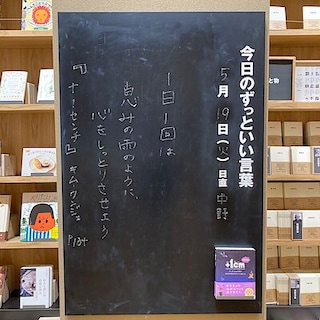 今日のずっといい言葉
5月19日(火) 日直 中野
1日1回は
恵みの雨のように、
心をしっとりさせよう
『+1センチ』 キムウンジュ P134
+1cm